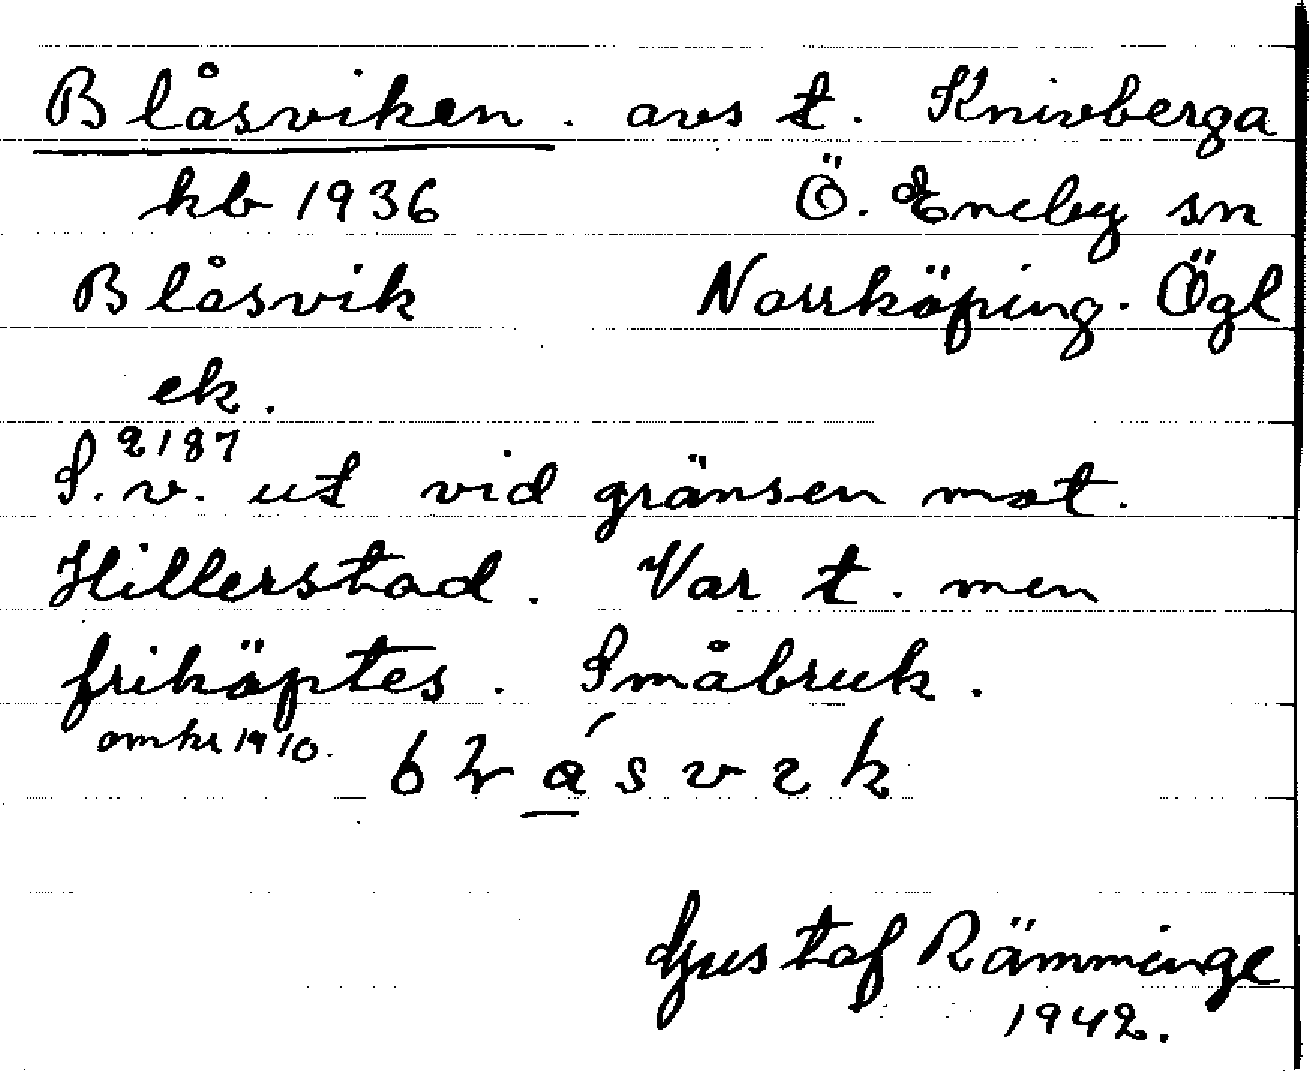 Blåsviken. avs t. Knivberga
kb 1936 Ö. Eneby sn
Blåsvik Norrköping. Ögl
ek.
2187
S.v. ut vid gränsen mot.
Hillerstad. Var t. men
friköptes. Småbruk.
omkr 1910.
Gustaf Rämminge
1942.